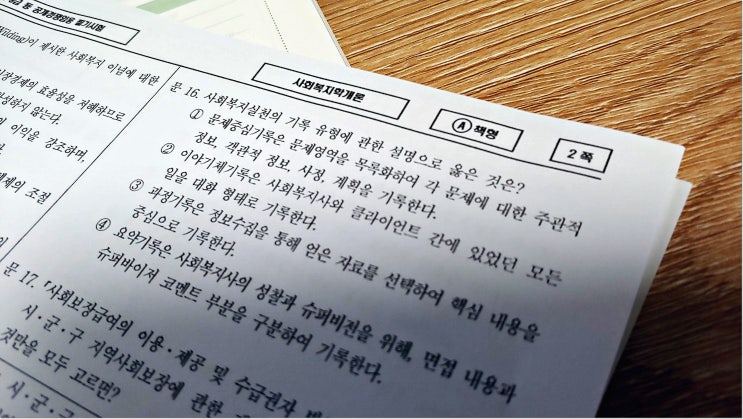 급 등 공개경쟁임용 필기시험
이 제시한 사회복지 이념에 대한
시장경제의 효율성을 저해하므로
않는다.
의 이익을 강조하며,
체제의 조절
사회복지학개론
Ⓐ 책형
2 쪽
문 16. 사회복지실천의 기록 유형에 관한 설명으로 옳은 것은?
① 문제중심기록은 문제영역을 목록화하여 각 문제에 대한 주관적
정보, 객관적 정보, 사정, 계획을 기록한다.
② 이야기체기록은 사회복지사와 클라이언트 간에 있었던 모든
일을 대화 형태로 기록한다.
③ 과정기록은 정보수집을 통해 얻은 자료를 선택하여 핵심 내용을
중심으로 기록한다.
④ 요약기록은 사회복지사의 성찰과 슈퍼비전을 위해, 면접 내용과
슈퍼바이저 코멘트 부분을 구분하여 기록한다.
문 17. 「사회보장급여의 이용·제공 및 수급권자
시·군·구 지역사회보장에 관한
것만을 모두 고르면?
시·군·